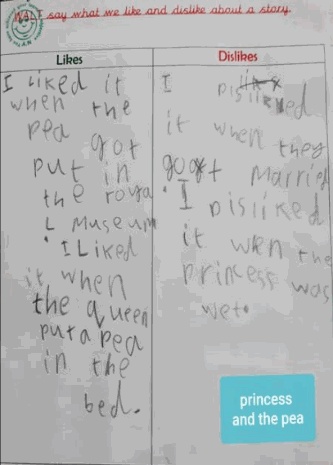 WALT say what we like and dislike about a story.
Likes
I Liked it
when the
pea got
put in
the roya
L Museum
• I Liked
it when
the queen
put a pea
in the
bed.
Dislikes
I Disliked
it when they
got Married
• I Disliked
it wen the
princess was
wet.
princess
and the pea